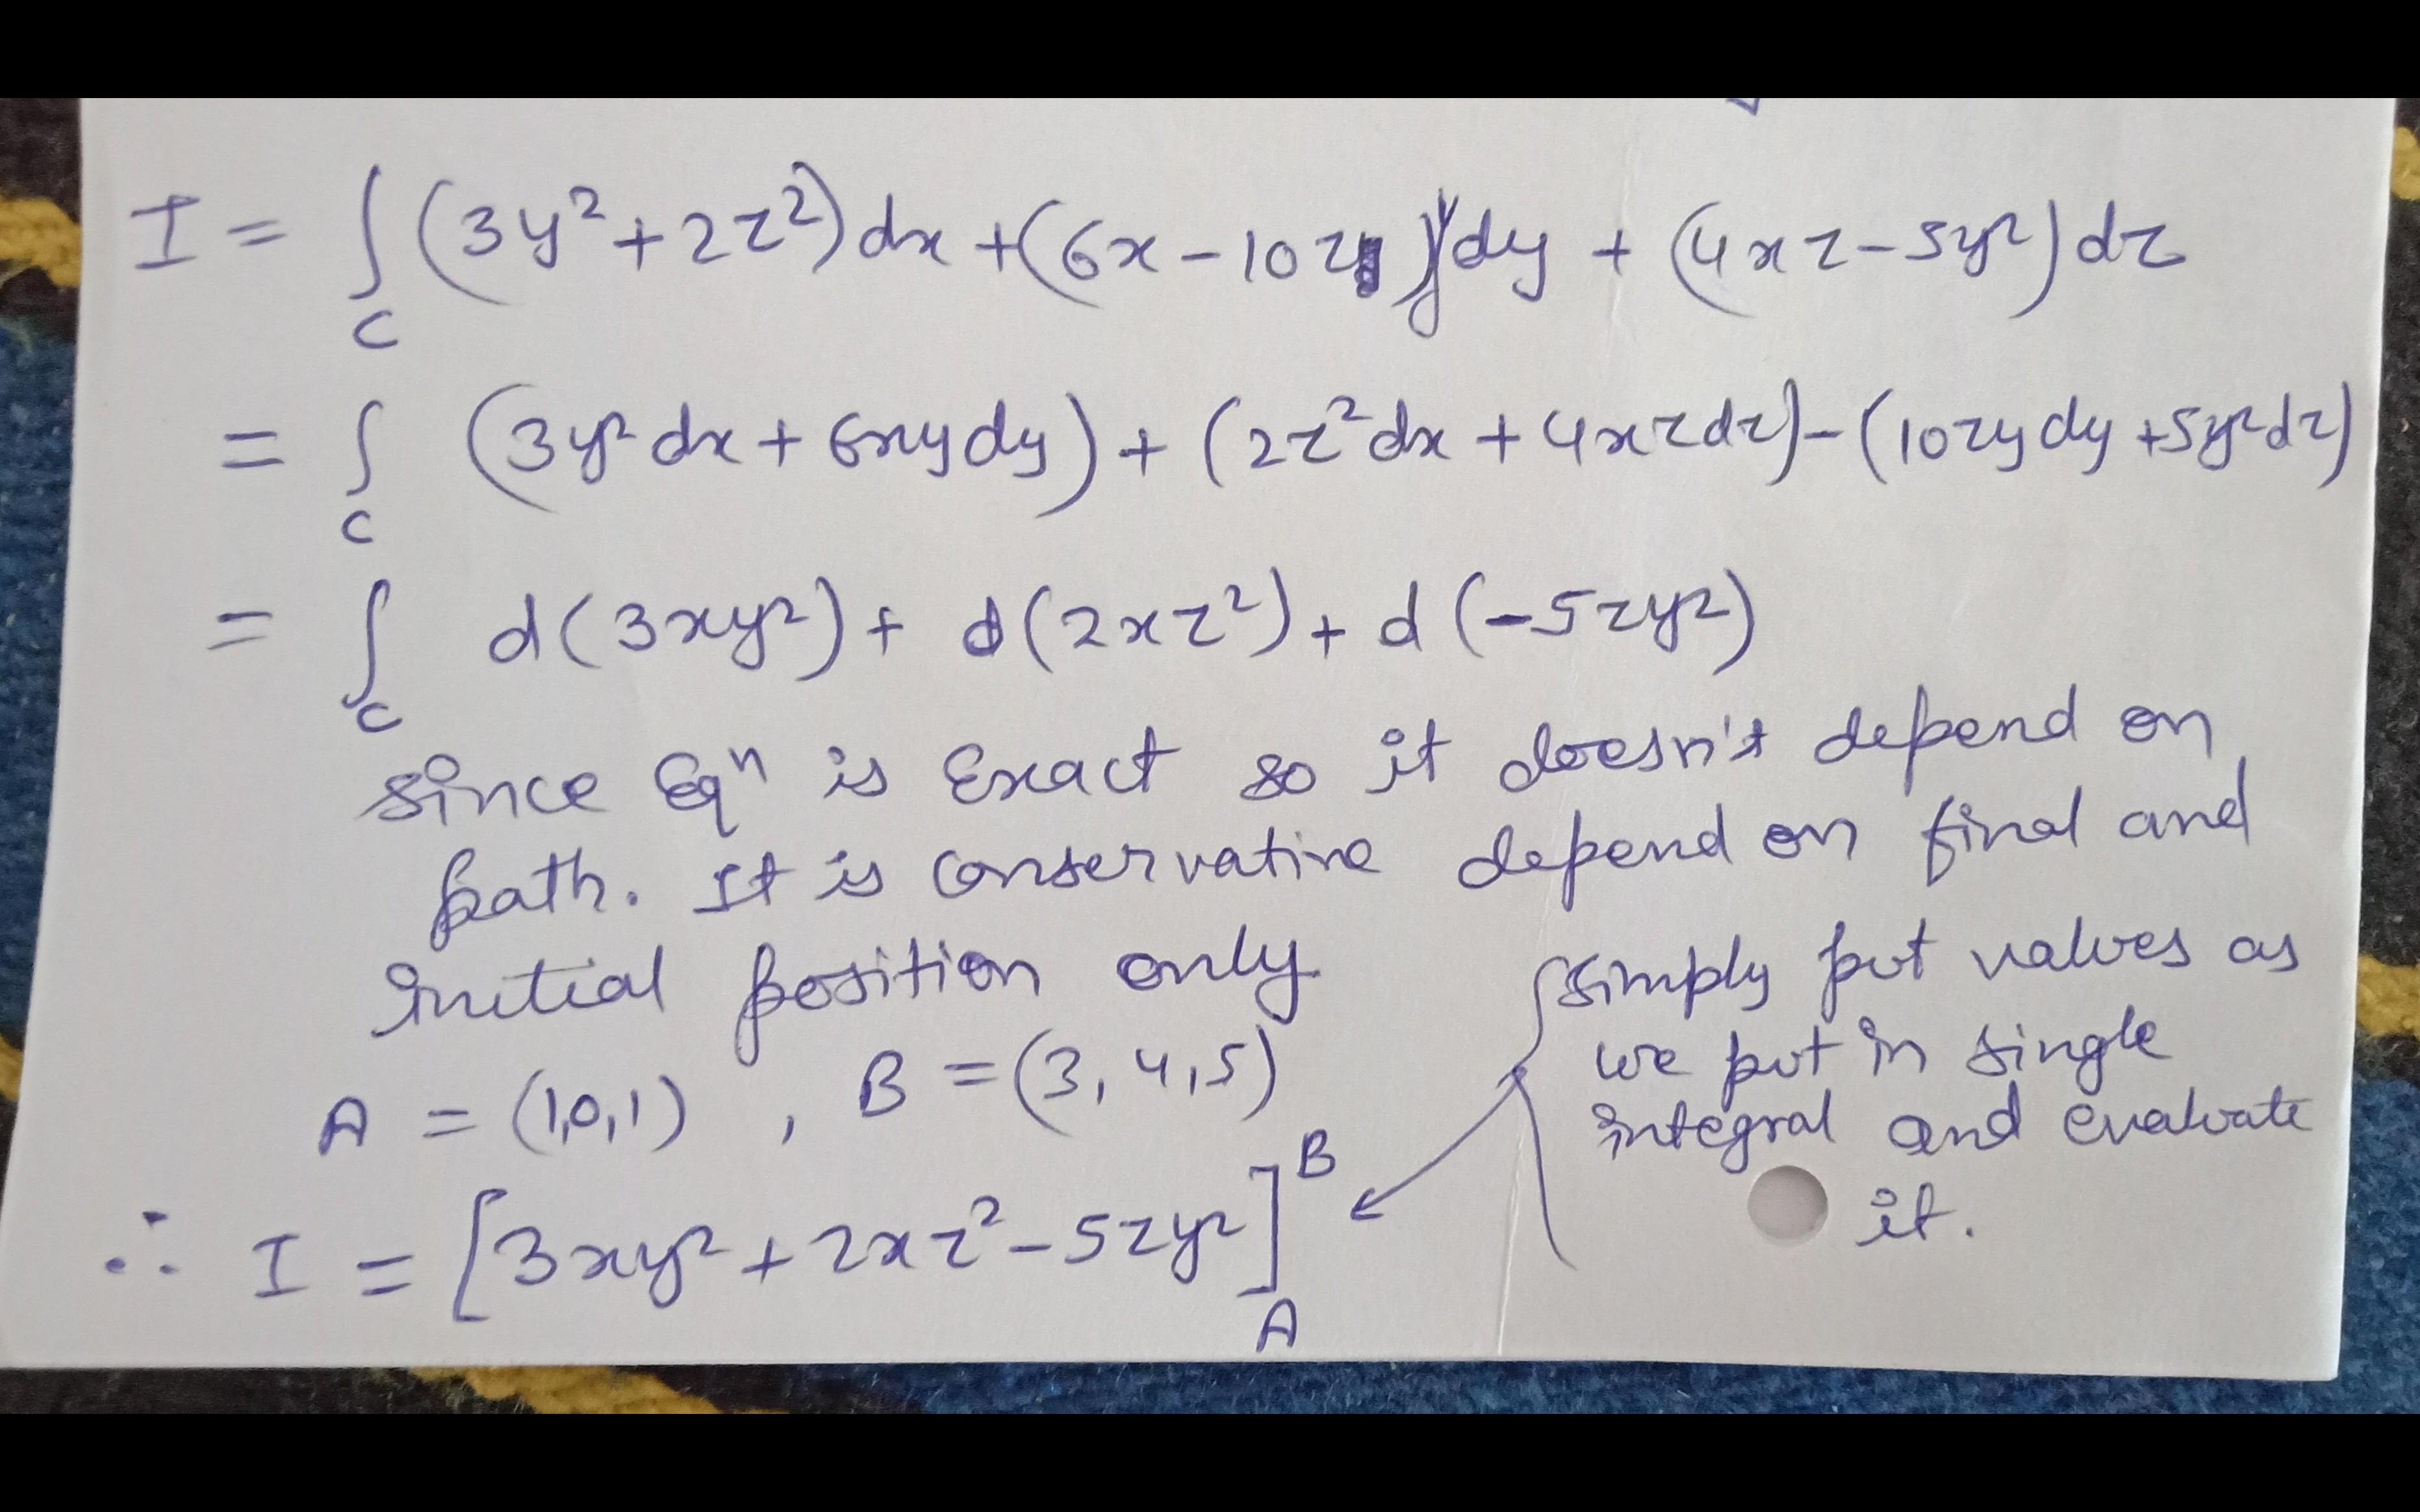 I = ∫_C (3y²+2z²)dx + (6x-10z)ydy + (4xz-5y²)dz
= ∫_C (3y²dx + 6xydy) + (2z²dx + 4xzdz) - (10zydy + 5y²dz)
= ∫_C d(3xy²) + d(2xz²) + d(-5zy²)
since Eqⁿ is Exact so it doesn't depend on
path. It is conservative depend on final and
initial position only
A = (1,0,1) , B = (3,4,5)
∴ I = [3xy² + 2xz² - 5zy²]_A^B
simply put values as
we put in single
integral and evaluate
it.